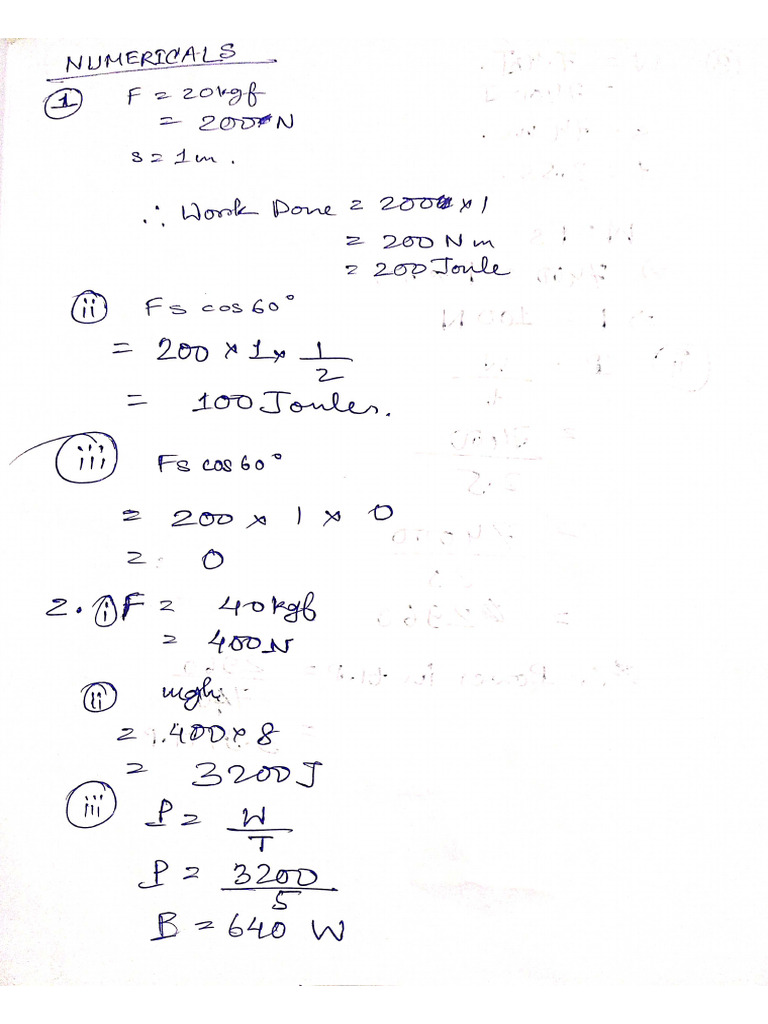 NUMERICALS
1 F = 20kgf
= 200 N
s = 1m.
∴ Work Done = 200 × 1
= 200 Nm
= 200 Joule
ii Fs cos 60°
= 200 × 1 × 1/2
= 100 Joules.
iii Fs cos 60°
= 200 × 1 × 0
= 0
2. i F = 40kgf
= 400N
ii mgh
= 400 × 8
= 3200J
iii P = W/T
P = 3200/5
P = 640 W